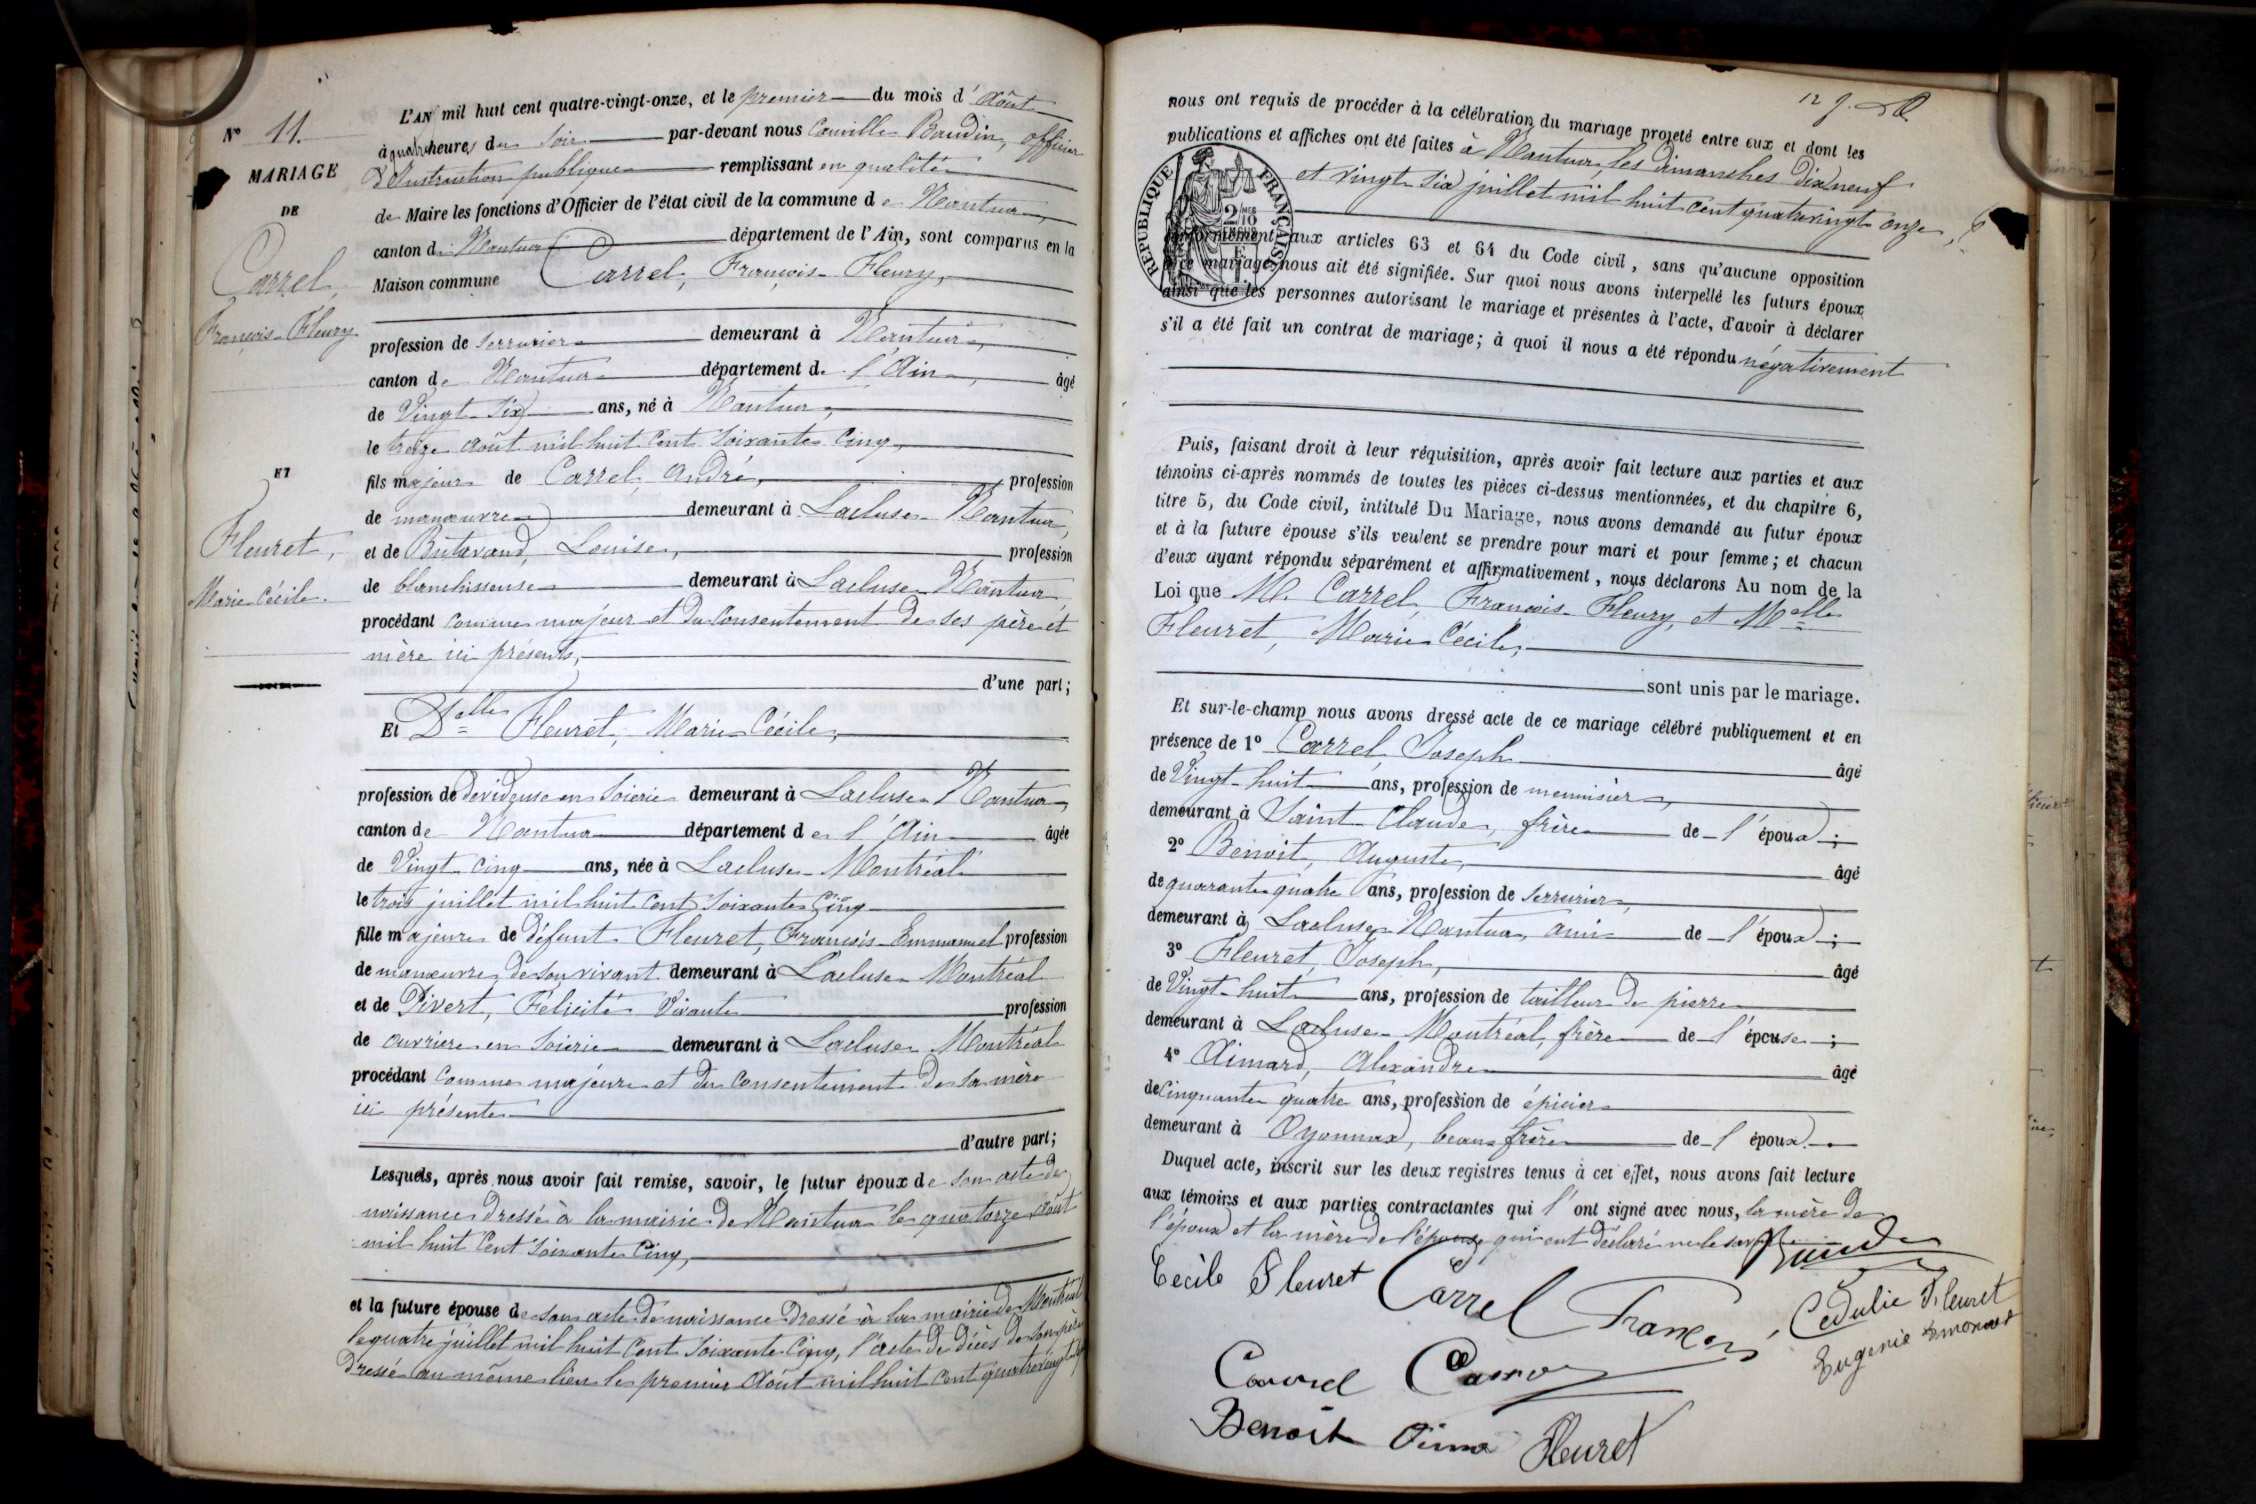 N° 11.
MARIAGE
DE
Carrel,
François-Fleury
ET
Fleuret,
Marie Cécile.
L'AN mil huit cent quatre-vingt-onze, et le premier du mois d'Août
à quatre heures du soir par-devant nous Camille Baudin, officier
d'Instruction publique remplissant en qualité
de Maire les fonctions d'Officier de l'état civil de la commune de Nantua
canton de Nantua département de l'Ain, sont comparus en la
Maison commune Carrel, François-Fleury,
profession de serrurier demeurant à Nantua,
canton de Nantua département de l'Ain, âgé
de Vingt-six ans, né à Nantua,
le treize août mil huit cent soixante cinq,
fils majeur de Carrel, André, profession
de manœuvre demeurant à Lacluse-Nantua,
et de Butavand, Louise, profession
de blanchisseuse demeurant à Lacluse-Nantua
procédant comme majeur et du consentement de ses père et
mère ici présents,
d'une part;
Et Delle Fleuret, Marie Cécile,
profession de dévideuse en soierie demeurant à Lacluse-Nantua,
canton de Nantua département de l'Ain âgée
de Vingt cinq ans, née à Lacluse-Montréal
le trois juillet mil huit cent soixante cinq
fille majeure de défunt Fleuret, François-Emmanuel profession
de manœuvre de son vivant demeurant à Lacluse-Montréal
et de Pivert, Félicité Vivante profession
de ouvrière en soierie demeurant à Lacluse-Montréal
procédant comme majeure et du consentement de sa mère
ici présente
d'autre part;
Lesquels, après nous avoir fait remise, savoir, le futur époux de son acte de
naissance dressé à la mairie de Nantua le quatorze août
mil huit cent soixante cinq,
et la future épouse de son acte de naissance dressé à la mairie de Montréal
le quatre juillet mil huit cent soixante cinq, l'acte de décès de son père
dressé au même lieu le premier Août mil huit cent quatrevingt
12 f.
nous ont requis de procéder à la célébration du mariage projeté entre eux et dont les
publications et affiches ont été faites à Nantua, les dimanches dix neuf
et vingt six juillet mil huit cent quatrevingt onze,
RÉPUBLIQUE FRANÇAISE
2/10
conformément aux articles 63 et 64 du Code civil, sans qu'aucune opposition
à ce mariage nous ait été signifiée. Sur quoi nous avons interpellé les futurs époux
ainsi que les personnes autorisant le mariage et présentes à l'acte, d'avoir à déclarer
s'il a été fait un contrat de mariage; à quoi il nous a été répondu négativement
Puis, faisant droit à leur réquisition, après avoir fait lecture aux parties et aux
témoins ci-après nommés de toutes les pièces ci-dessus mentionnées, et du chapitre 6,
titre 5, du Code civil, intitulé Du Mariage, nous avons demandé au futur époux
et à la future épouse s'ils veulent se prendre pour mari et pour femme; et chacun
d'eux ayant répondu séparément et affirmativement, nous déclarons Au nom de la
Loi que M. Carrel, François-Fleury, et Melle
Fleuret, Marie Cécile,
sont unis par le mariage.
Et sur-le-champ nous avons dressé acte de ce mariage célébré publiquement et en
présence de 1° Carrel Joseph âgé
de Vingt-huit ans, profession de menuisier,
demeurant à Saint-Claude, frère de l'époux;
2° Benoît, Auguste, âgé
de quarante quatre ans, profession de serrurier,
demeurant à Lacluse-Nantua, ami de l'époux;
3° Fleuret Joseph, âgé
de Vingt-huit ans, profession de tailleur de pierre
demeurant à Lacluse-Montréal, frère de l'épouse;
4° Aimard, Alexandre âgé
de cinquante quatre ans, profession de épicier
demeurant à Oyonnax, beau-frère de l'époux.
Duquel acte, inscrit sur les deux registres tenus à cet effet, nous avons fait lecture
aux témoins et aux parties contractantes qui l'ont signé avec nous, la mère de
l'époux et la mère de l'épouse qui ont déclaré ne le savoir.
Cécile Fleuret Carrel François
Cédulie Fleuret
Eugénie
Carrel
Benoit Fleuret